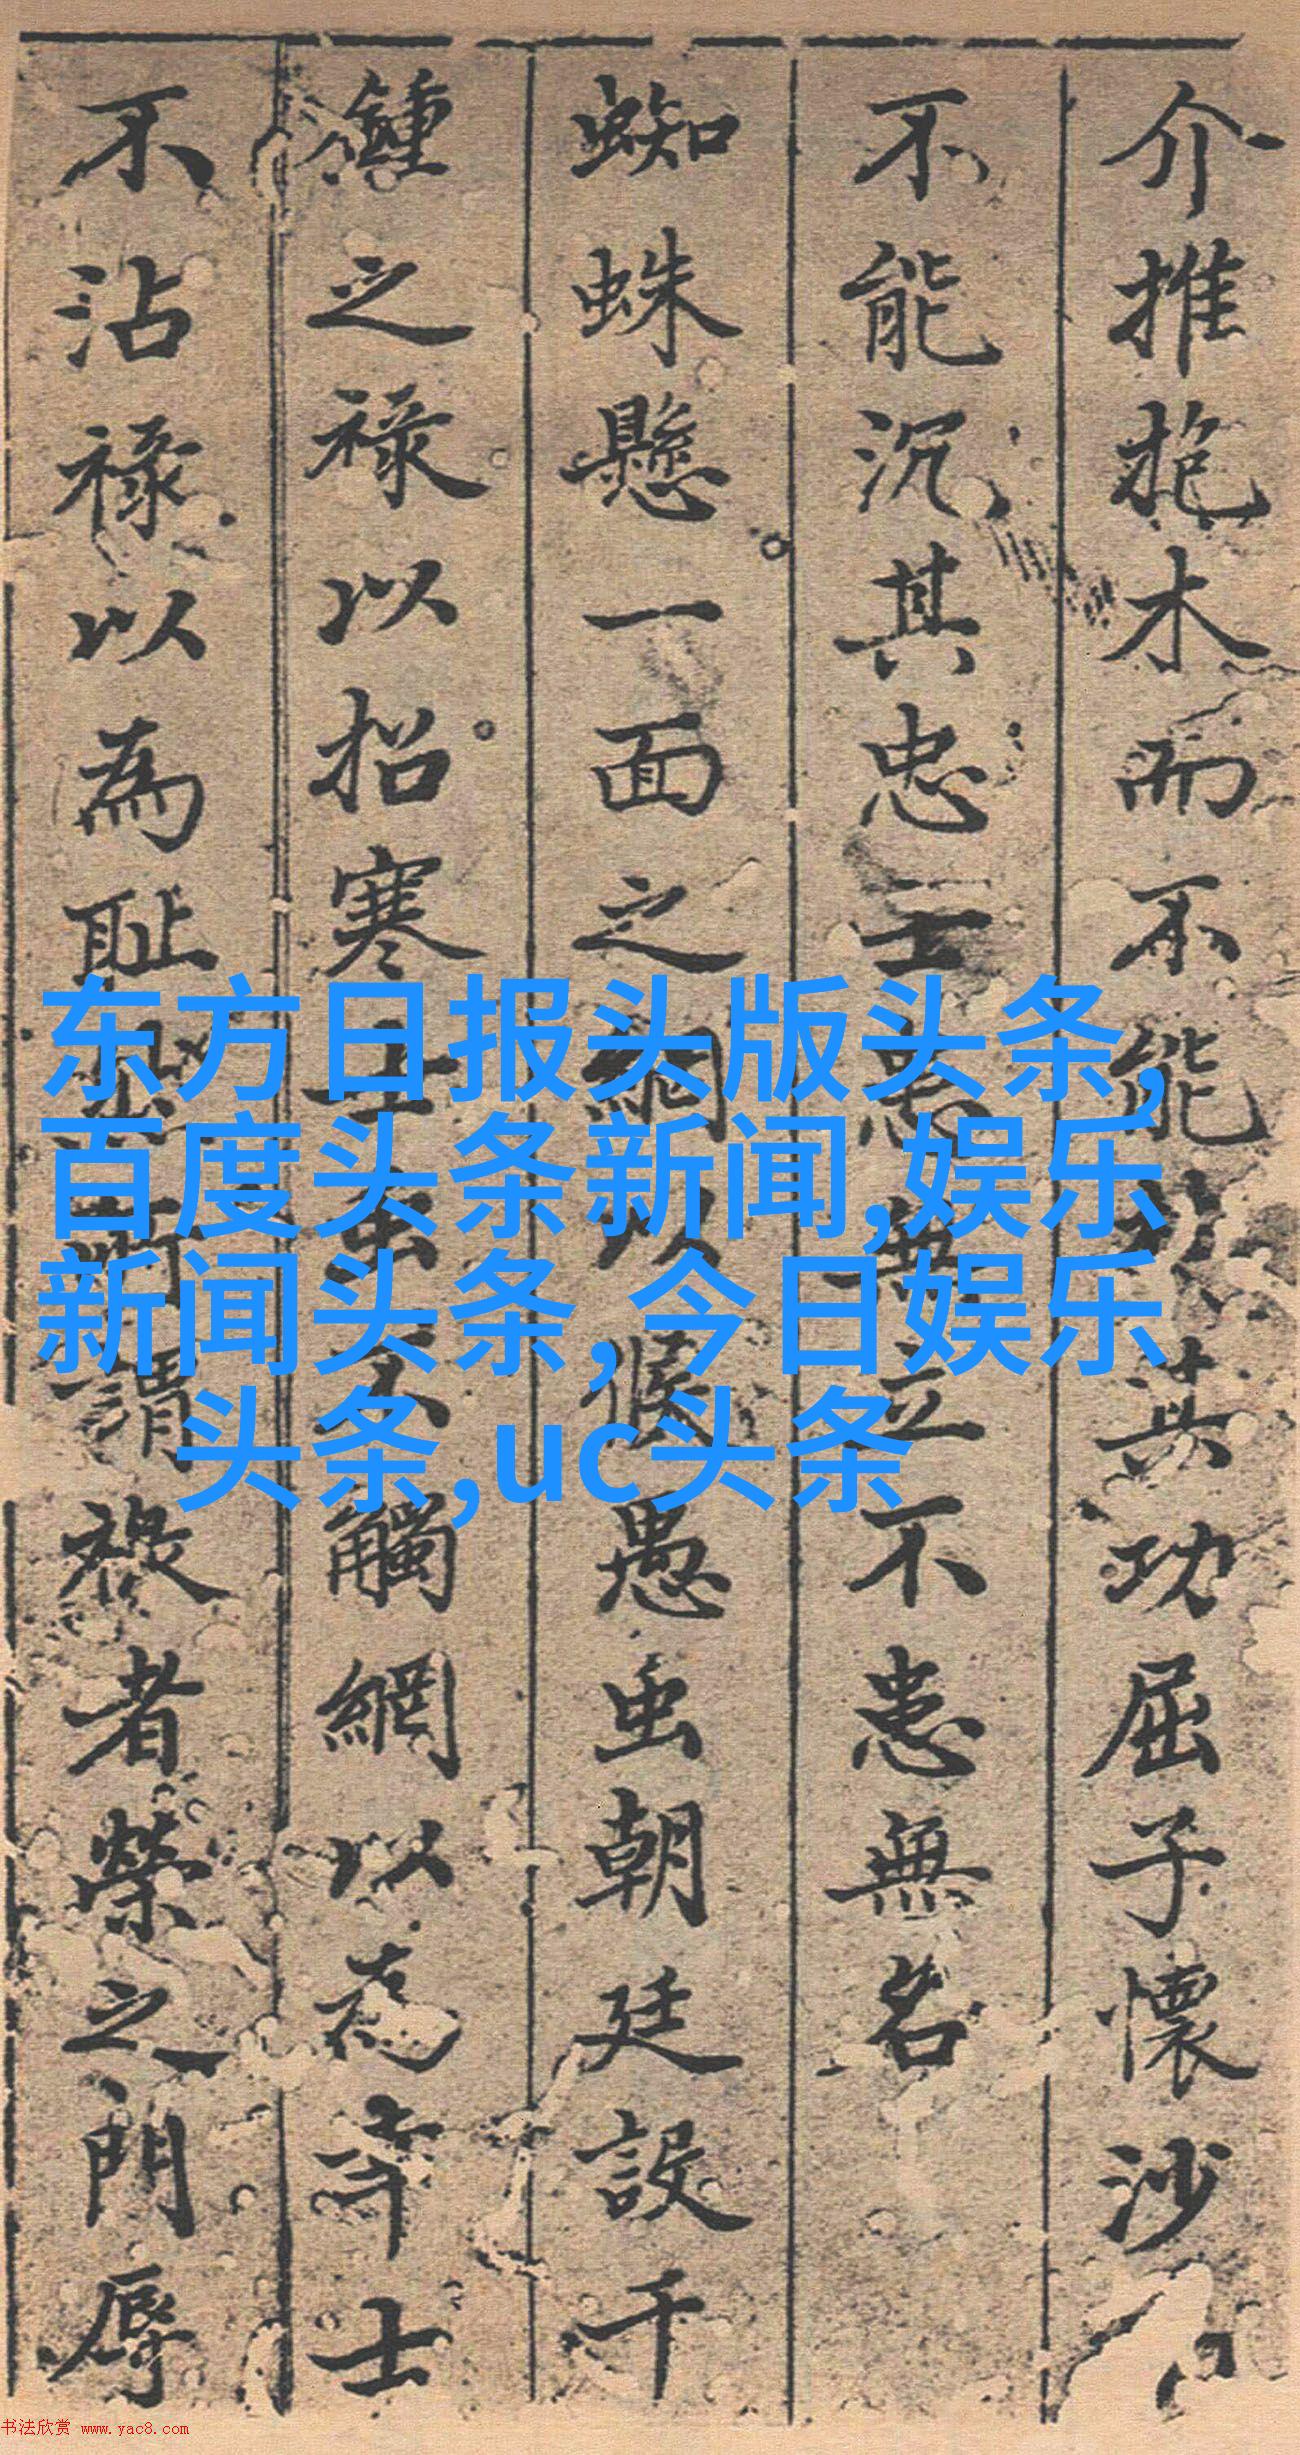 介推抱木而不能以其功屈子懷沙
不能沉其忠士患無立不患無名
蜘蛛懸一面之網以候愚虫朝廷設千
鍾之禄以招寒士士不觸網以為寧士
不沾禄以為耻所謂禄者榮之門辱
东方日报头版头条,
百度头条新闻,娱乐
新闻头条, 今日娱乐
头条,uc头条
书法欣赏 www.yac8.com